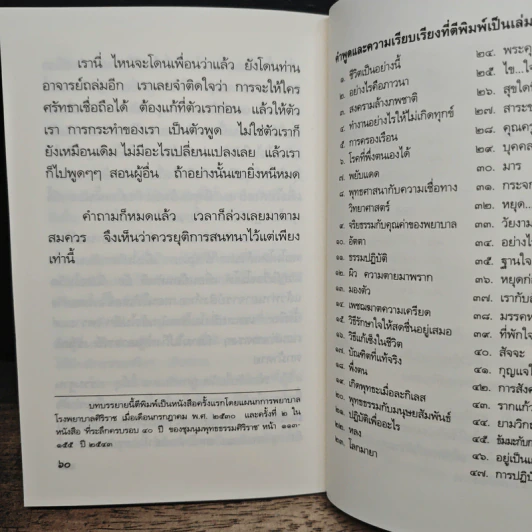 เรานี่ ไหนจะโดนเพื่อนว่าแล้ว ยังโดนท่าน
อาจารย์ถล่มอีก เราเลยจำติดใจว่า การจะให้ใคร
ศรัทธาเชื่อถือได้ ต้องแก้ที่ตัวเราก่อน แล้วให้ตัว
เรา การกระทำของเรา เป็นตัวพูด ไม่ใช่ตัวเราก็
ยังเหมือนเดิม ไม่มีอะไรเปลี่ยนแปลงเลย แล้วเรา
ก็ไปพูดๆๆ สอนผู้อื่น ถ้าอย่างนั้นเขายิ่งหนีหมด
คำถามก็หมดแล้ว เวลาก็ล่วงเลยมาตาม
สมควร จึงเห็นว่าควรยุติการสนทนาไว้แต่เพียง
เท่านี้
บทบรรยายนี้ตีพิมพ์เป็นหนังสือครั้งแรกโดยแผนกการพยาบาล
โรงพยาบาลศิริราช เมื่อเดือนกรกฎาคม พ.ศ. ๒๕๓๐ และครั้งที่ ๒ ใน
หนังสือ ที่ระลึกครบรอบ ๔๐ ปี ของชุมนุมพุทธธรรมศิริราช หน้า ๑๑๓-
๑๕๕ ปี ๒๕๔๓
๖๐
คำพูดและความเรียบเรียงที่ตีพิมพ์เป็นเล่ม
๑. ชีวิตเป็นอย่างนี้
๒. อย่างไรคือภาวนา
๓. สงครามล้างภพชาติ
๔. ทำงานอย่างไรให้ไม่เกิดทุกข์
๕. การครองเรือน
๖. โรคที่พึ่งตนเองได้
๗. พยับแดด
๘. พุทธศาสนากับความเชื่อทาง
วิทยาศาสตร์
๙. จริยธรรมกับคุณค่าของพยาบาล
๑๐. อัตตา
๑๑. ธรรมปฏิบัติ
๑๒. ผิว ความตายมาพราก
๑๓. มองตัว
๑๔. เพชฌฆาตความเครียด
๑๕. วิธีรักษาใจให้สดชื่นอยู่เสมอ
๑๖. วิธีแก้เซ็งในชีวิต
๑๗. บัณฑิตที่แท้จริง
๑๘. พึ่งตน
๑๙. เกิดพุทธะเมื่อละกิเลส
๒๐. พุทธธรรมกับมนุษยสัมพันธ์
๒๑. ปฏิบัติเพื่ออะไร
๒๒. หลง
๒๓. โลกมายา
๒๔. พระคุ
๒๕. ไข...ใ
๒๖. สุขใดที่
๒๗. สาระข
๒๘. คุณคว
๒๙. บุคคล
๓๐. มาร
๓๑. กระจก
๓๒. หยุด..
๓๓. วัยงาม
๓๔. อย่างไ
๓๕. ฐานใจ
๓๖. หยุดก่อ
๓๗. เรากับเ
๓๘. มรรคห
๓๙. ที่พักใจ
๔๐. สัจจะ
๔๑. กุญแจใ
๔๒. การสังค
๔๓. รากแก้ว
๔๔. ยามวิกฤ
๔๕. ธัมมะกับก
๔๖. อยู่เป็นแ
๔๗. การปฏิบั